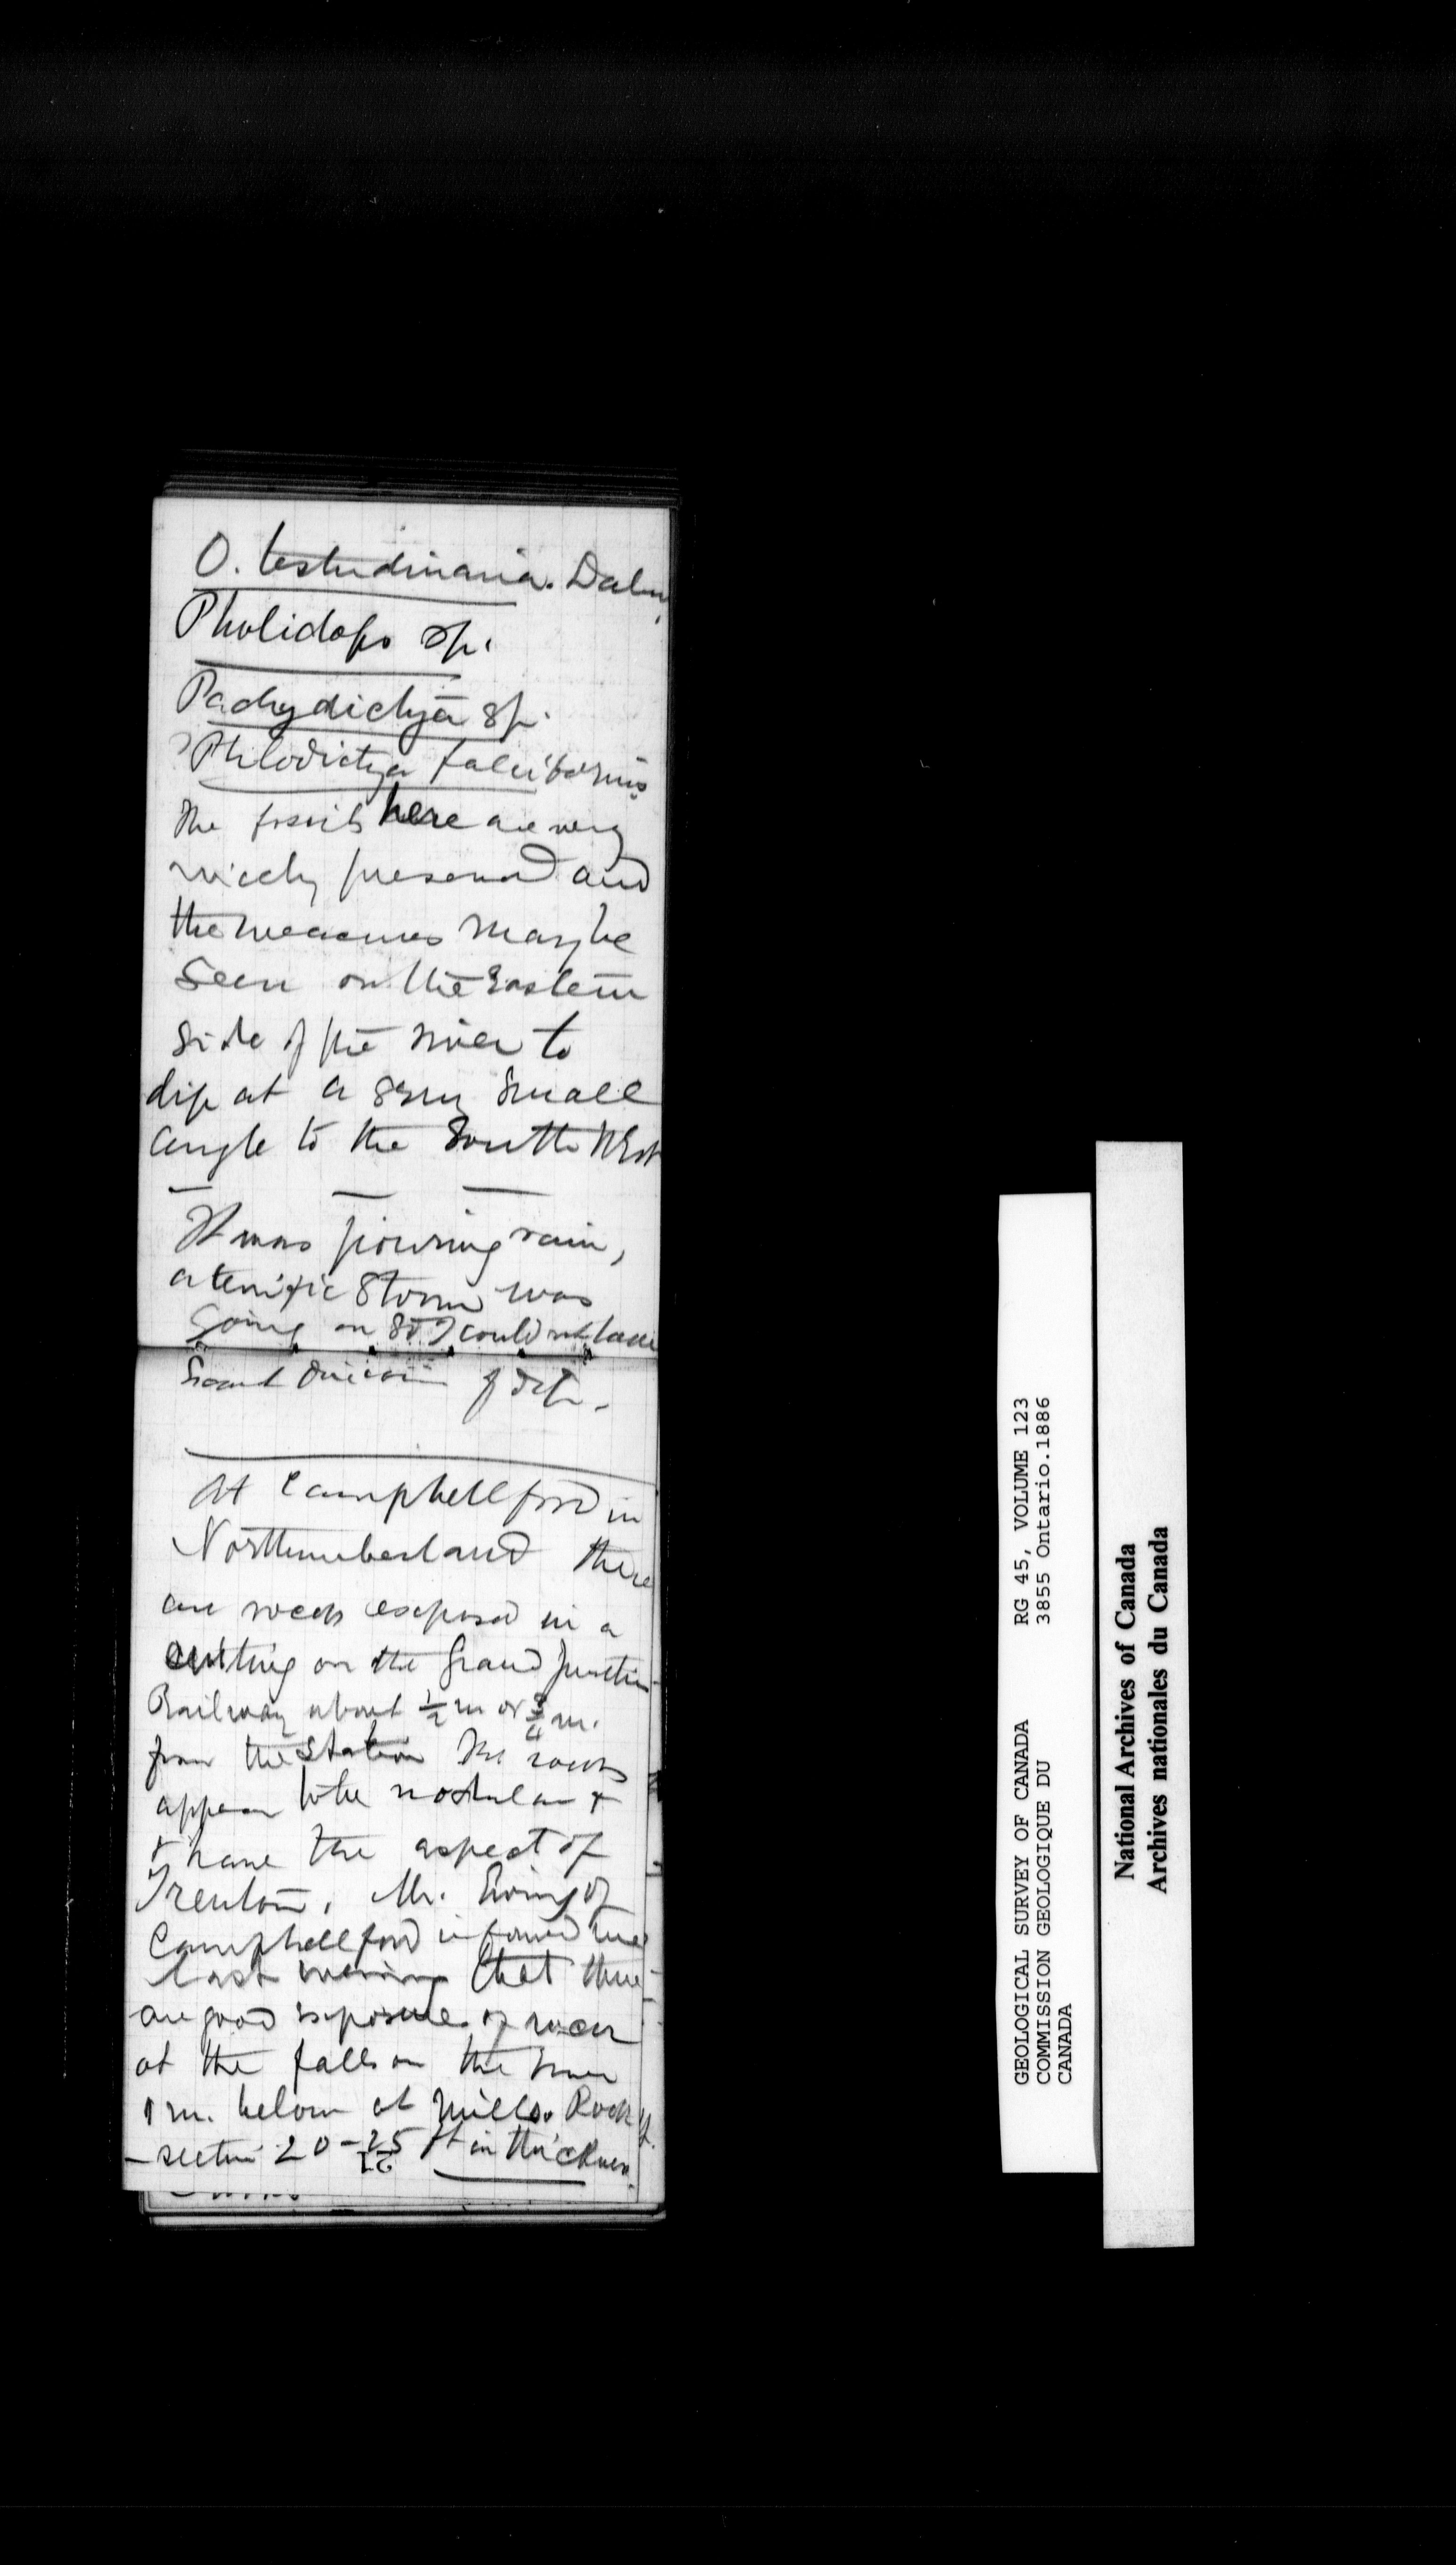 O. testudinaria. Dalm.
Pholidops sp.
Pachydictya sp.
? Ptilodictya falciformis
The fossils here are very
nicely preserved and
the measures may be
seen on the Eastern
side of the river to
dip at a very small
angle to the South West
It was pouring rain,
a terrific storm was
going on so I could not take
direction of dip.
At Campbellford in
Northumberland there
are rocks exposed in a
cutting on the Grand Junction
Railway about ½ m or ¾ m.
from the station The rocks
appear to be nodular &
& have the aspect of
Trenton. Mr. Ewing of
Campbellford informed me
last evening that there
are good exposures of rock
at the falls on the river
1 m. below at Mills. Rocky
- section 20-25 ft in thickness.
21
GEOLOGICAL SURVEY OF CANADA RG 45, VOLUME 123
COMMISSION GEOLOGIQUE DU 3855 Ontario.1886
CANADA
National Archives of Canada
Archives nationales du Canada